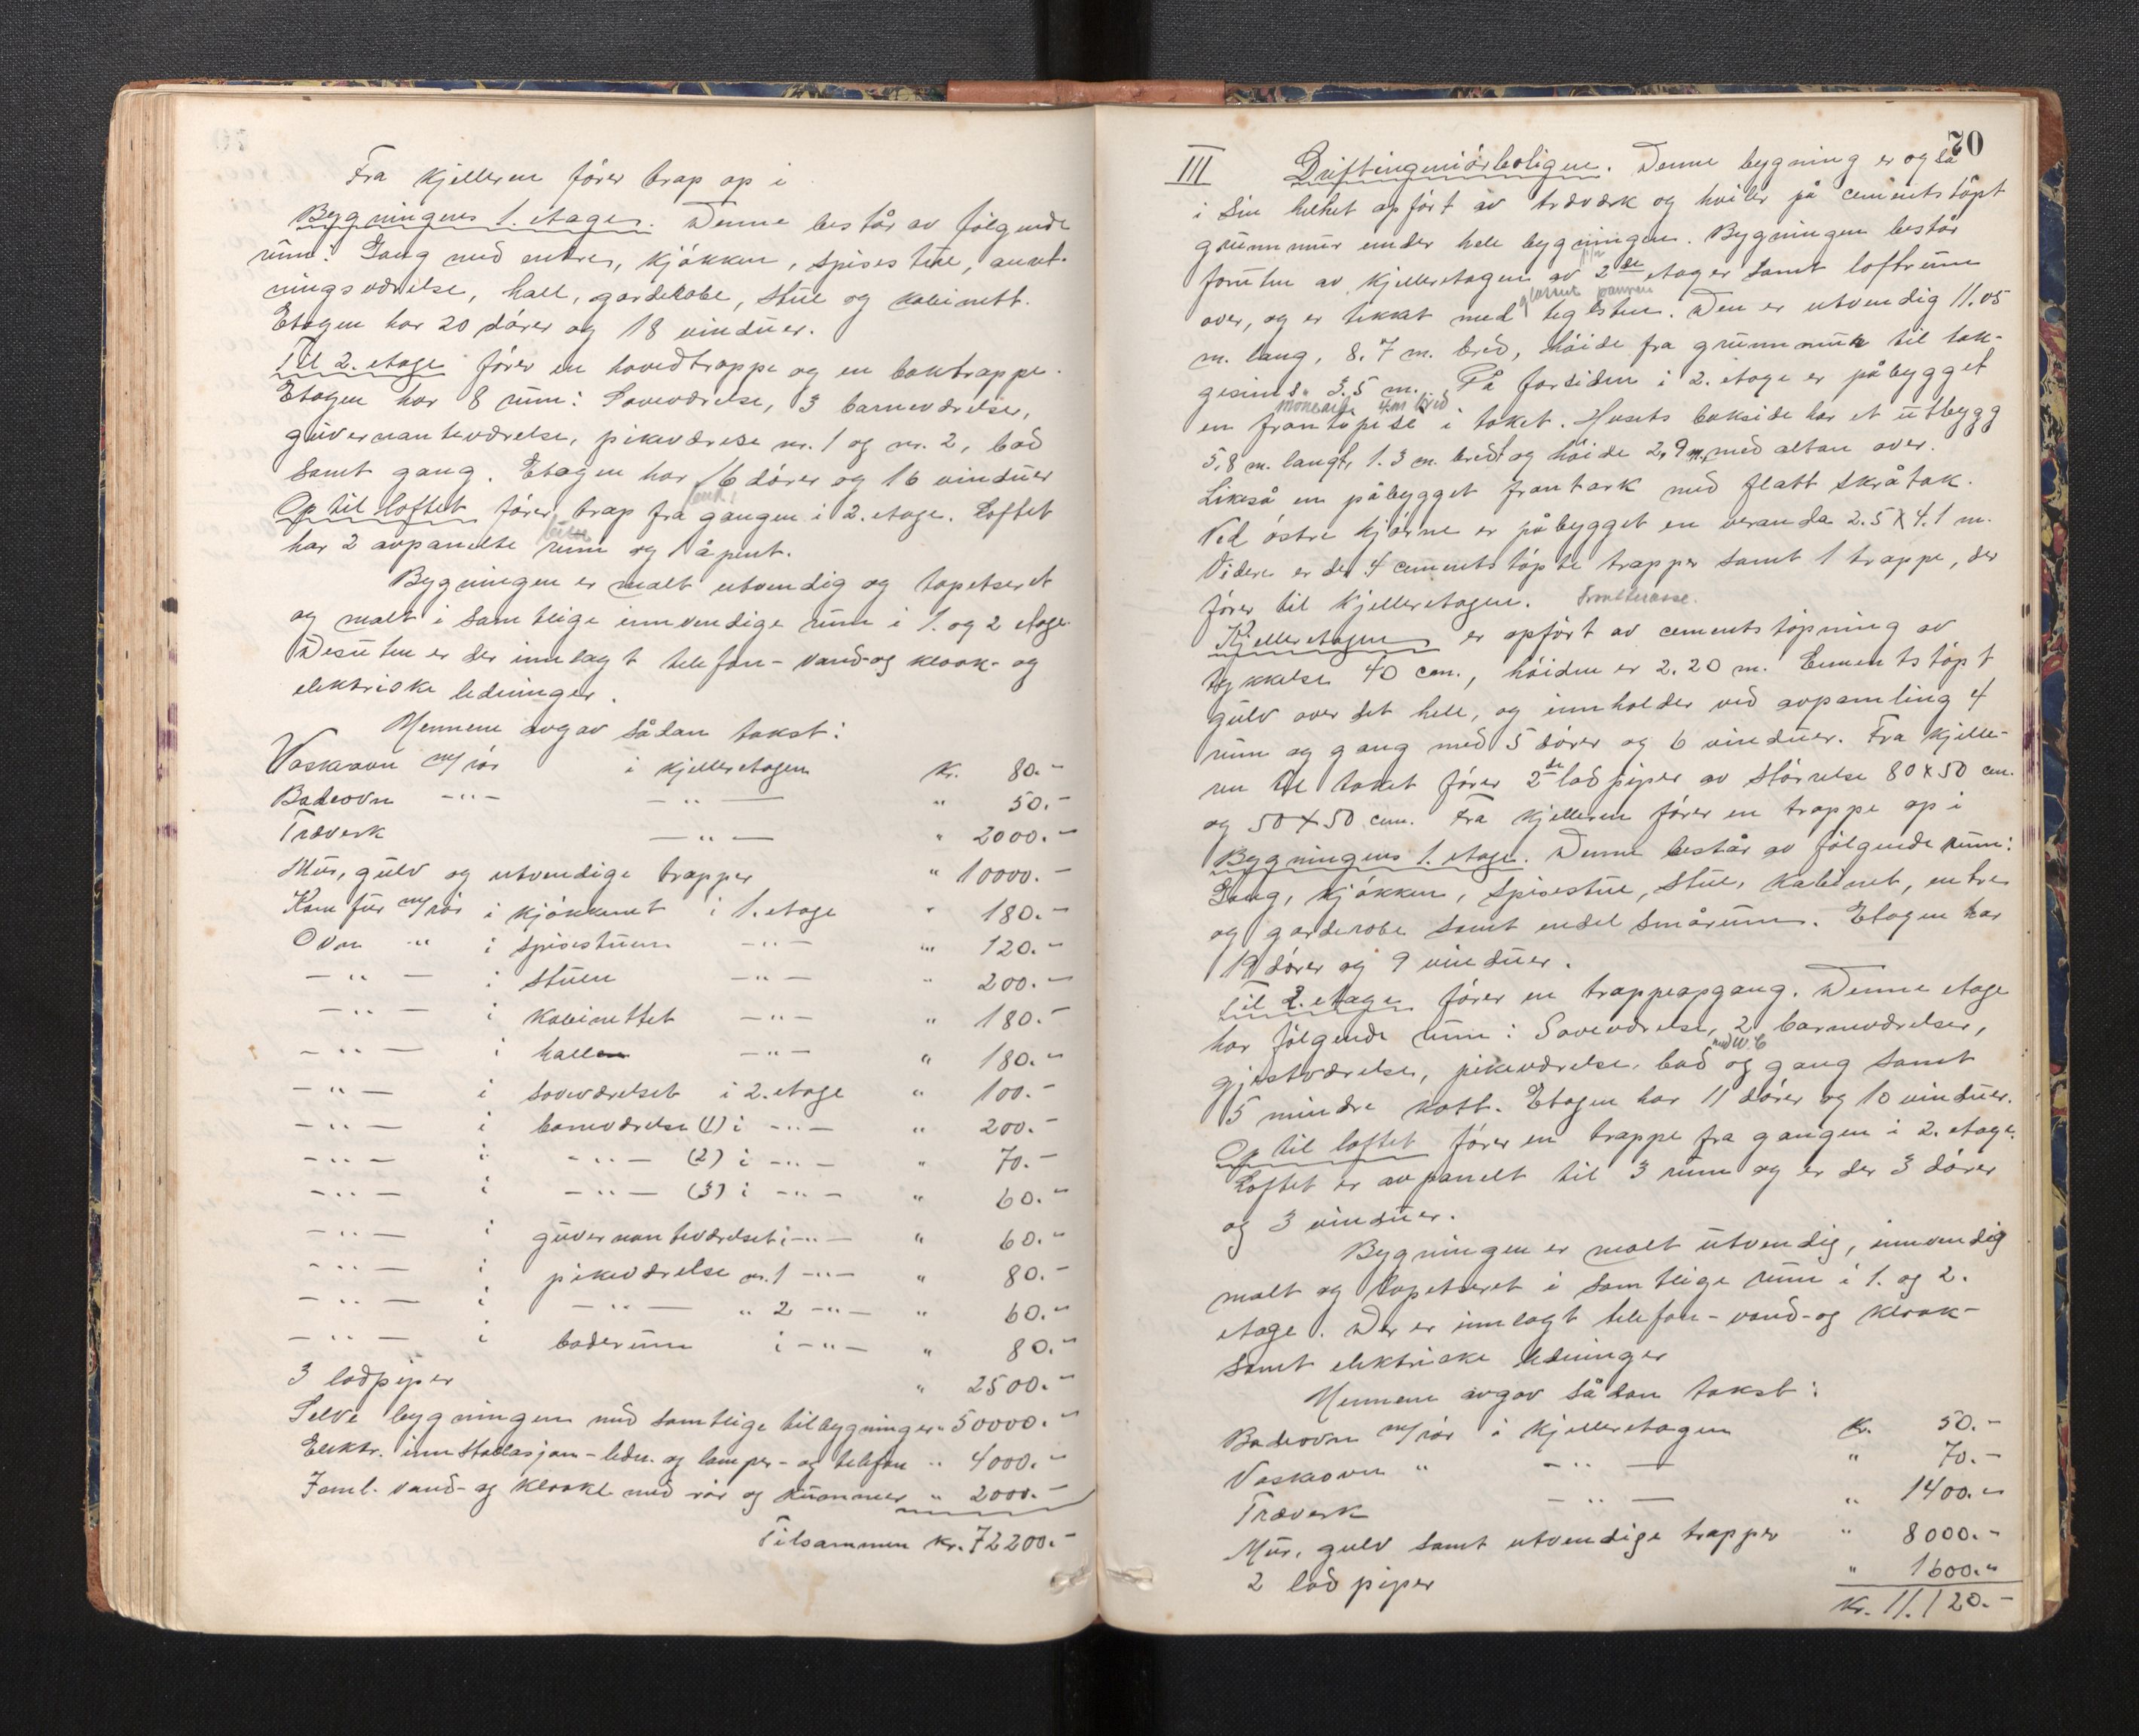 Fra kjelleren fører trap op i
Bygningens 1. etage. Denne består av følgende
rum: Gang med entre, kjøkken, spisestue, anret-
ningsværelse, hall, garderobe, stue og kabinett.
Etagen har 20 dører og 18 vinduer.
Til 2. etage fører en hovedtrappe og en baktrappe.
Etagen har 8 rum: Soveværelse, 3 barneværelser,
guvernanteværelse, pikeværelse nr. 1 og nr. 2, bad
samt gang. Etagen har 16 dører og 16 vinduer
Op til loftet fører trap fra gangen i 2. etage. Loftet
har 2 avpanelte rum og 1 åpent.
Bygningen er malt utvendig og tapetseret
og malt i samtlige innvendige rum i 1. og 2 etage.
Desuten er der innlagt telefon- vand- og kloak- og
elektriske ledninger.
Mennene avgav sådan takst:
Vaskeovn m/rør i kjelleretagen kr. 80.-
Badeovn -"- -"- " 50.-
Træverk -"- " 2000.-
Mur, gulv og utvendige trapper " 10000.-
Komfur m/rør i kjøkkenet i 1. etage " 180.-
Ovn " i spisestuen -"- " 120.-
-"- i stuen -"- " 200.-
-"- i kabinettet -"- " 180.-
-"- i hallen -"- " 180.-
-"- i soveværelset i 2. etage " 100.-
-"- i barneværelse (1) i -"- " 200.-
-"- i -"- (2) i -"- " 70.-
-"- i -"- (3) i -"- " 60.-
-"- i guvernanteværelset i -"- " 60.-
-"- i pikeværelse nr. 1 -"- " 80.-
-"- i -"- " 2 -"- " 60.-
-"- i baderum i -"- " 80.-
3 ladpiper " 2500.-
Selve bygningen med samtlige tilbygninger " 50000.-
Elektr. innstallasjon- ledn. og lamper- og telefon " 4000.-
Saml. vand- og kloakl. med rør og kummer " 2000.-
Tilsammen kr. 72200.-
70
III Driftingeniørboligen. Denne bygning er også
i sin helhet opført av træværk og hviler på cementstøpt
grunnmur under hele bygningen. Bygningen består
foruten av kjelleretagen av 2de etager samt loftrum
glasserte pannen
over, og er tekket med teglsten. Den er utvendig 11.05
m. lang, 8.7 m. bred, høide fra grunnmur til tak-
gesims 3.5 m. På forsiden i 2. etage er påbygget
4 m bred
en frontopise i taket. Husets bakside har et utbygg
5,8 m. langt, 1.3 m. bredt og høide 2,9 m, med altan over.
Likeså en påbygget frontark med flatt skråtak.
Ved østre hjørne er påbygget en veranda 2.5 X 4.1 m.
Videre er der 4 cementstøpte trapper samt 1 trappe, der
fører til kjelleretagen.
Kjelleretagen er opført av cementstøpning av
tykkelse 40 cm., høiden er 2.20 m. Cementstøpt
gulv over det hele, og innholder ved avpanling 4
rum og gang med 5 dører og 6 vinduer. Fra kjelle-
ren til taket fører 2de ladpiper av størrelse 80 x 50 cm.
og 50 X 50 cm. Fra kjelleren fører en trappe op i
Bygningens 1. etage. Denne består av følgende rum:
Gang, kjøkken, spisestue, stue, kabinet, entre
og garderobe samt endel smårum. Etagen har
19 dører og 9 vinduer.
Til 2. etage fører en trappeopgang. Denne etage
har følgende rum: Soveværelse, 2 barneværelser,
med W.C
gjestværelse, pikeværelse, bad og gang samt
5 mindre kott. Etagen har 11 dører og 10 vinduer.
Op til loftet fører en trappe fra gangen i 2. etage.
Loftet er avpanelt til 3 rum og er der 3 dører
og 3 vinduer.
Bygningen er malt utvendig, innvendig
malt og tapetseret i samtlige rum i 1. og 2.
etage. Der er innlagt telefon- vand- og kloak-
samt elektriske ledninger
Mennene avgav sådan takst:
Badeovn m/rør i kjelleretagen kr. 50.-
Vaskeovn " -"- " 70.-
Træverk -"- " 1400.-
Mur, gulv samt utvendige trapper " 8000.-
2 ladpiper " 1600.-
Kr. 11.120.-